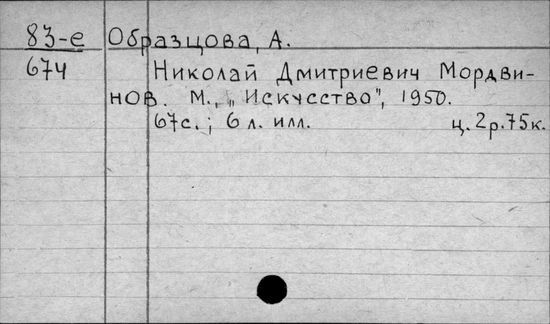 83-е Образцова, А.
674 Николай Дмитриевич Мордви-
нов. М., „Искусство", 1950.
67с.; 6 л. илл. ц. 2р. 75к.